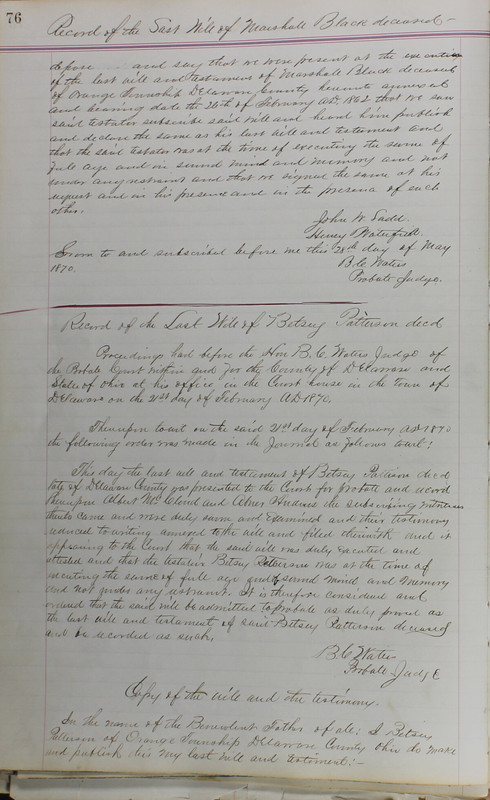 76
Record of the Last Will of Marshall Black deceased —
depose and say that we were present at the execution
of the last will and testament of Marshall Black deceased
of Orange Township Delaware County hereunto annexed
and bearing date the 26th of February AD 1862 that we saw
said testator subscribe said will and heard him publish
and declare the same as his last will and testament and
that the said testator was at the time of executing the same of
full age and in sound mind and memory and not
under any restraint and that we signed the same at his
request and in his presence and in the presence of each
other.
John W. Ladd
Henry Waterfield
Sworn to and subscribed before me this 28th day of May
1870.
B.C. Waters
Probate Judge.
Record of the Last Will of Betsey Patterson decd
Proceedings had before the Hon B.C. Waters Judge of
the Probate Court within and for the County of Delaware and
State of Ohio at his office in the Court house in the town of
Delaware on the 21st day of February AD 1870.
Thereupon to wit on the said 21st day of February AD 1870
the following order was made in the Journal as follows towit:
This day the last will and testament of Betsey Pattison decd
late of Delaware County was presented to the Court for probate and record
thereupon Albert Mc Cloud and Abner the subscribing witnesses
thereto came and were duly sworn and examined and their testimony
reduced to writing annexed to the will and filed therewith and it
appearing to the Court that the said will was duly executed and
attested and that the testatrix Betsey Patterson was at the time of
executing the same of full age and of sound mind and memory
and not under any restraint. It is therefore considered and
ordered that the said will be admitted to probate as duly proved as
the last will and testament of said Betsey Patterson deceased
and be recorded as such.
B.C. Waters
Probate Judge
Copy of the will and the testimony.
In the name of the Benevolent Father of all: I Betsey
Patterson of Orange Township Delaware County Ohio do make
and publish this my last will and testiment:—